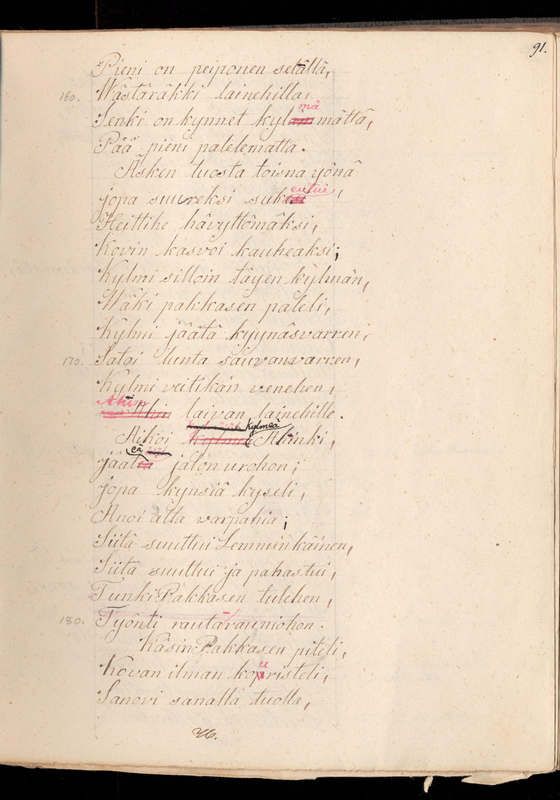 91.
Pieni on peiponen selällä,
160. Wästäräkki lainehilla,
Senki on kynnet kylmämättä,
Pää pieni palelematta.
Äsken tuosta toisna yönä
jopa suureksi sukeutui,
Heittihe hävyttömäksi,
Kovin kasvoi kauheaksi;
Kylmi silloin täyen kylmän,
Wäki pakkasen paleli,
Kylmi jäätä kyynäsvarren,
170. Satoi lunta sauvanvarren,
Kylmi veitikän venehen,
Ahin laivan lainehille.
Aikoi kylmeä Ahinki,
jääteä jalon urohon;
jopa kynsiä kyseli,
Anoi alta varpahia;
Siitä suuttui Lemminkäinen,
Siitä suuttui ja pahastui,
Tunki Pakkasen tulehen,
180. Työnti rautarauniohon.
Käsin Pakkasen piteli,
Kovan ilman kouristeli,
Sanovi sanalla tuolla,